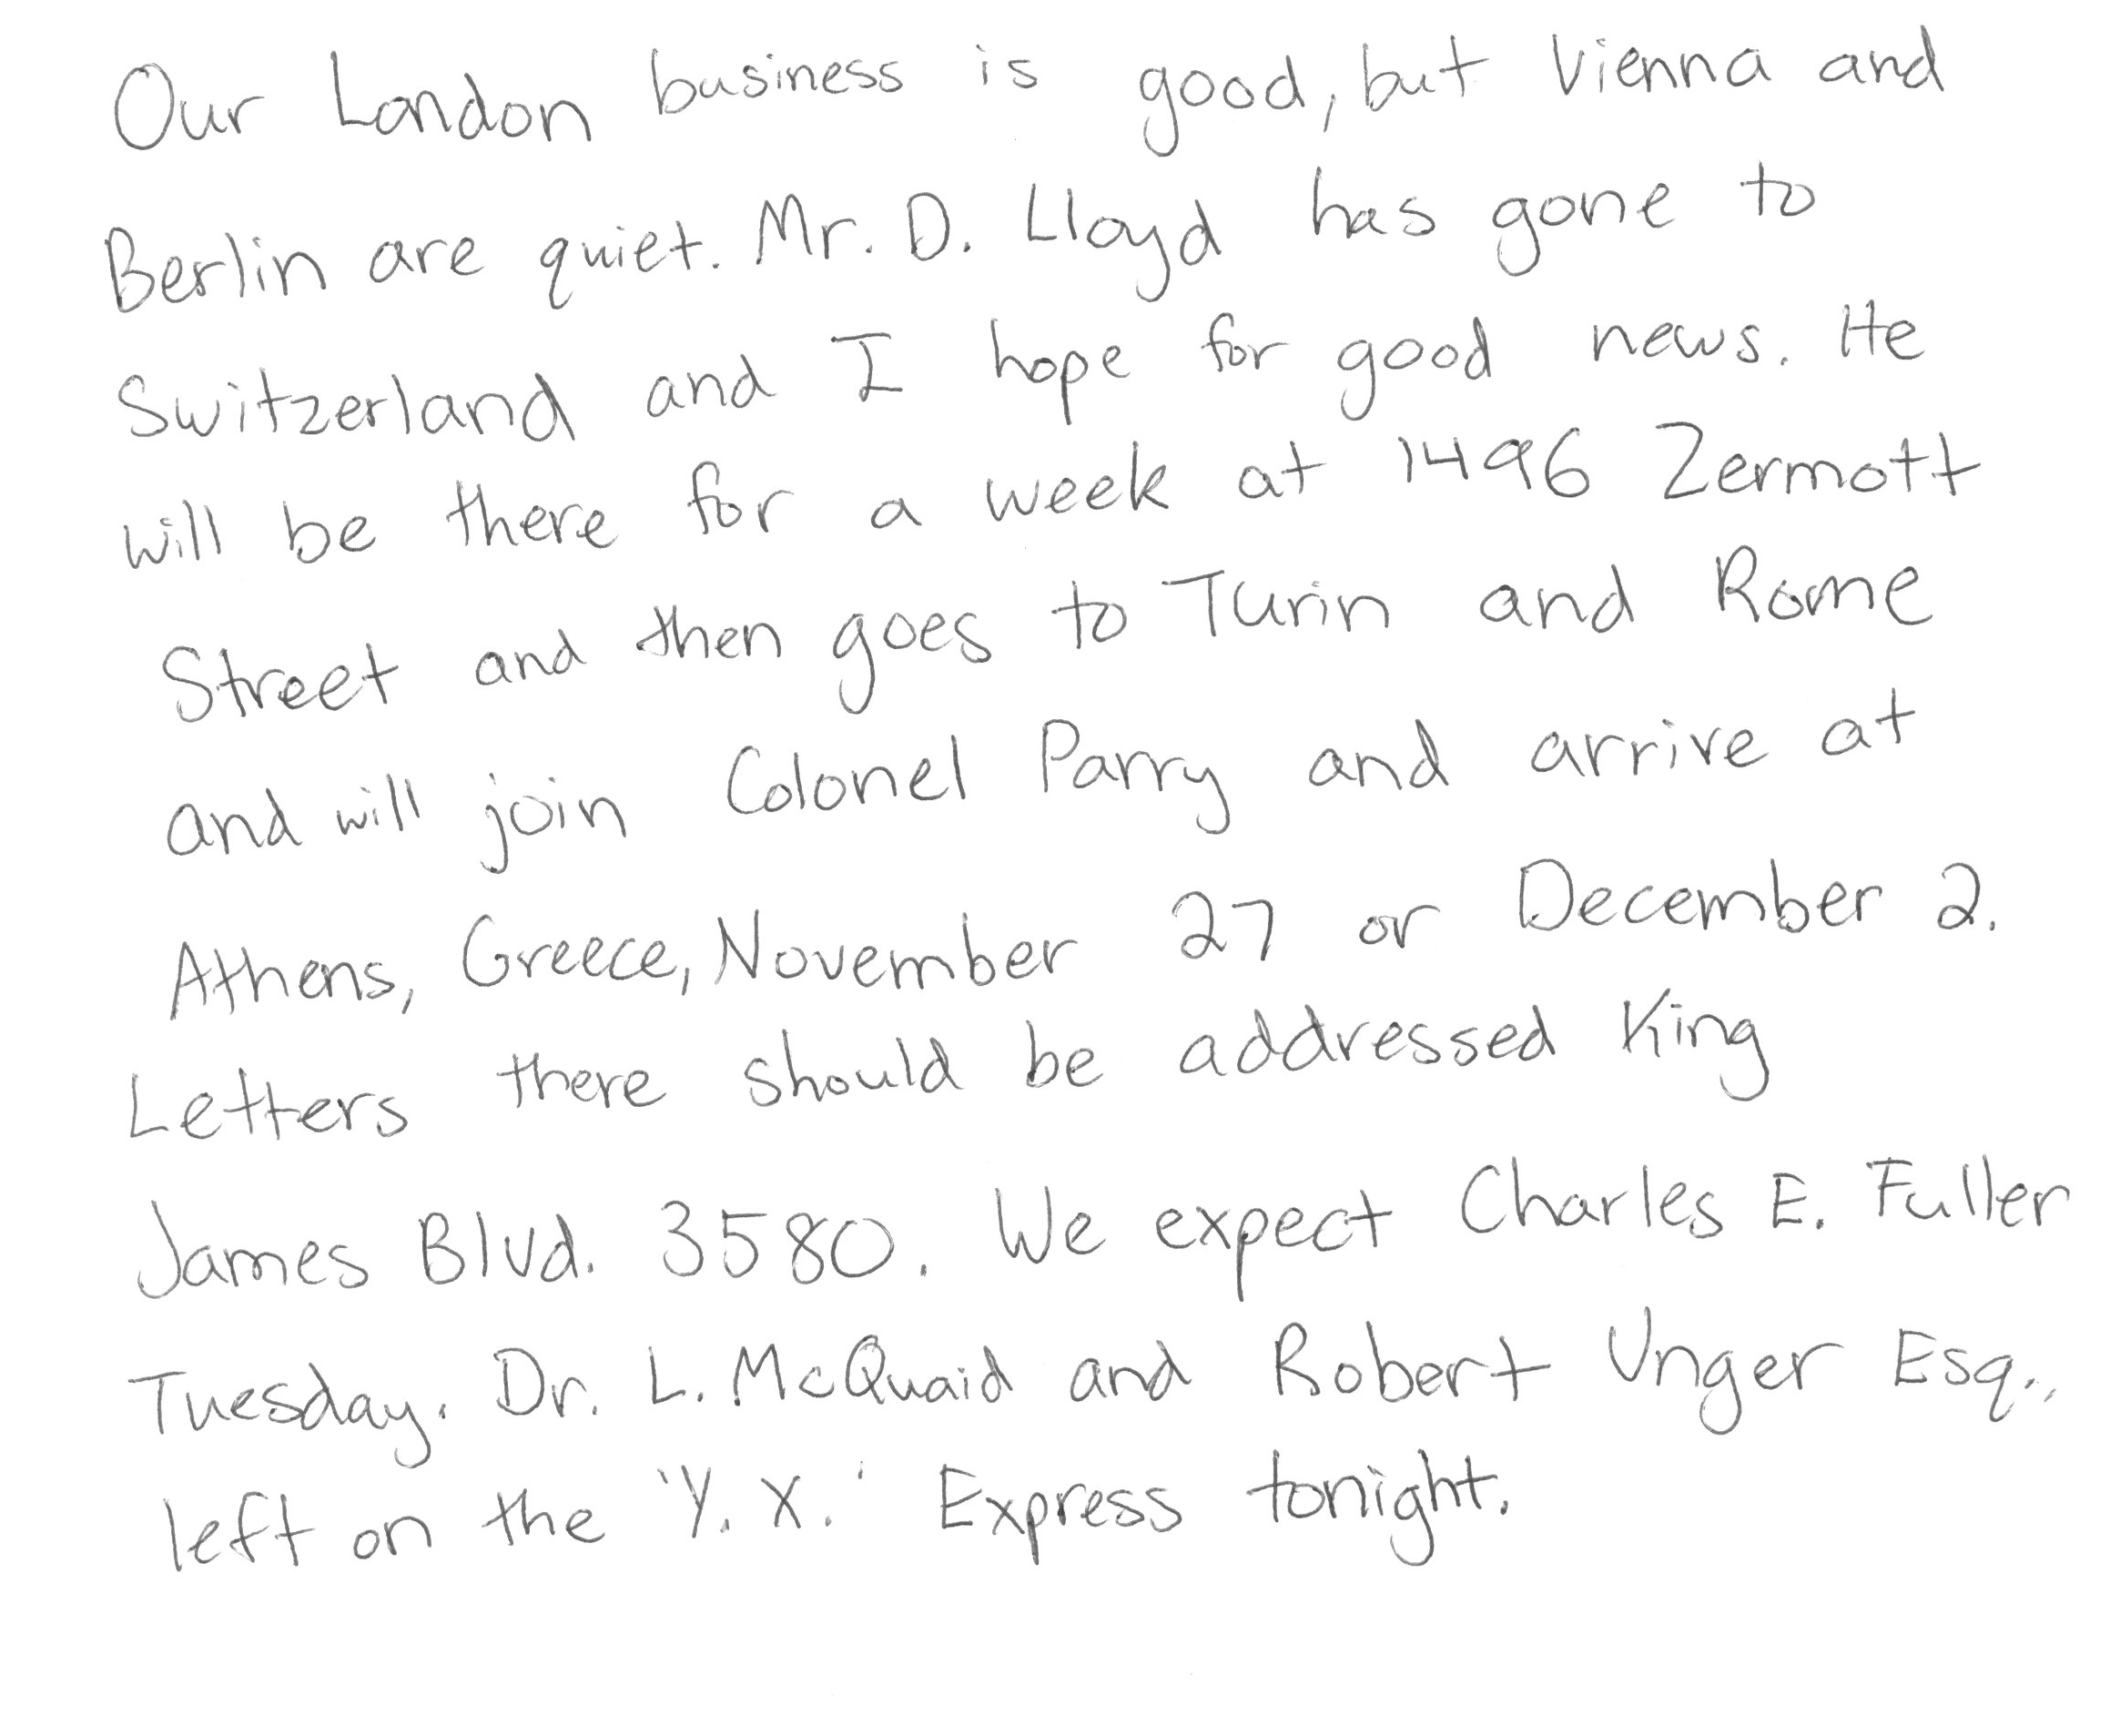 Our London business is good, but Vienna and
Berlin are quiet. Mr. D. Lloyd has gone to
Switzerland and I hope for good news. He
will be there for a week at 1496 Zermott
Street and then goes to Turin and Rome
and will join Colonel Parry and arrive at
Athens, Greece, November 27 or December 2.
Letters there should be addressed King
James Blvd. 3580. We expect Charles E. Fuller
Tuesday. Dr. L. McQuaid and Robert Unger Esq.,
left on the 'Y. X.' Express tonight.